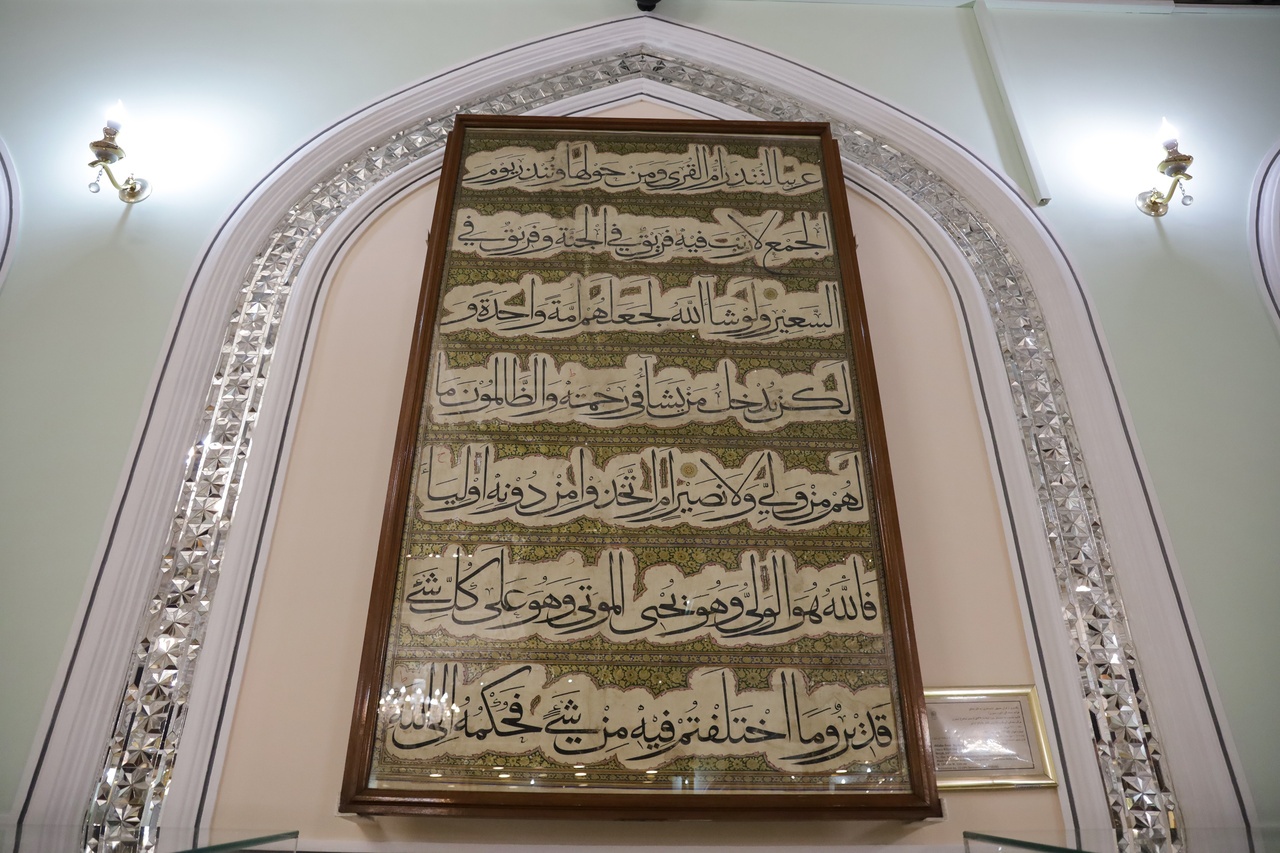 عربيا لتنذر ام القرى ومن حولها وتنذر يوم
الجمع لا ريب فيه فريق في الجنة وفريق في
السعير ولو شا الله لجعلهم امة واحدة و
لكن يدخل من يشا في رحمته والظالمون ما
لهم من ولي ولا نصير ام اتخذوا من دونه اوليا
فالله هو الولي وهو يحيى الموتى وهو على كل شئ
قدير وما اختلفتم فيه من شئ فحكمه الى الله